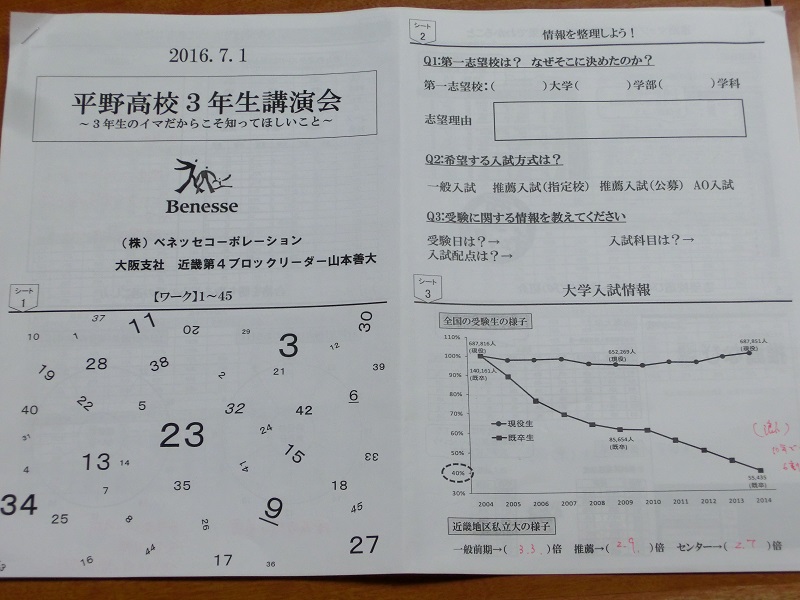 2016.7.1
平野高校3年生講演会
～3年生のイマだからこそ知ってほしいこと～
Benesse
(株)ベネッセコーポレーション
大阪支社 近畿第4ブロックリーダー山本善大
シート
1
【ワーク】1～45
37 11 20 29 30
10 1 3 12
19 28 38 2 21 39
40 22 5 32 42 6
31 23 24
4 13 14 14 15 33
34 7 35 18
25 8 26 9 45
16 44 17 36 27
シート
2
情報を整理しよう!
Q1:第一志望校は? なぜそこに決めたのか?
第一志望校:( )大学( )学部( )学科
志望理由
Q2:希望する入試方式は?
一般入試 推薦入試(指定校) 推薦入試(公募) AO入試
Q3:受験に関する情報を教えてください
受験日は?→ 入試科目は?→
入試配点は?→
シート
3
大学入試情報
全国の受験生の様子
110%
100%
90%
80%
70%
60%
50%
40%
30%
687,816人
(現役)
140,161人
(既卒)
652,269人
(現役)
687,851人
(現役)
現役生
既卒生
85,654人
(既卒)
55,435
(既卒)
2004 2005 2006 2007 2008 2009 2010 2011 2012 2013 2014
近畿地区私立大の様子
一般前期→( 3.3 )倍 推薦→( 2.9 )倍 センター→( 2.7 )倍